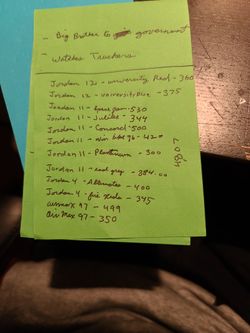 - Big Brother to government
- Watches Truckers
Jordan 12s - university Red - 360
Jordan 12 - university Blue - 375
Jordan 11 - Space Jam - 530
Jordan 11 - Jubilee - 344
Jordan 11 - Concord - 500
Jordan 11 - win like 96 - 420
Jordan 11 - Platinum - 300
Jordan 11 - cool grey - 384.00
Jordan 4 - Alternates - 400
Jordan 4 - fire Reds - 345
airmax 97 - 499
Air Max 97 - 350